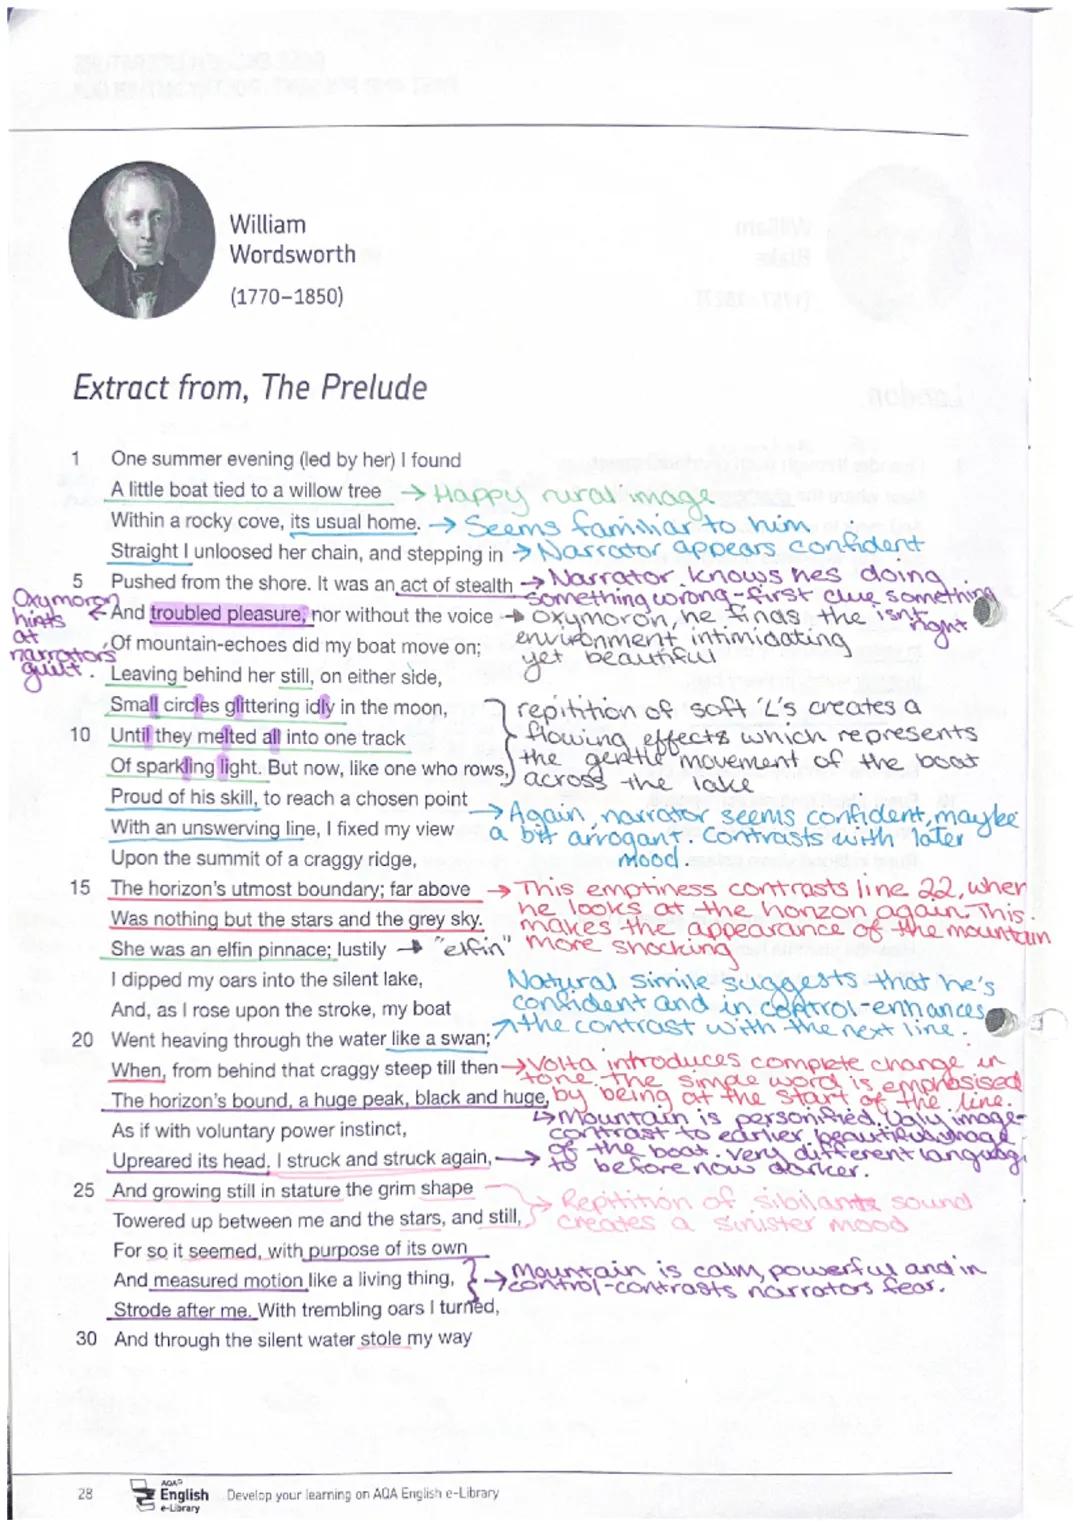 William
Wordsworth
(1770–1850)
Extract from, The Prelude
1 One summer evening (led by her) I found
A little boat tied to a willow tree → Happy rural image
Within a rocky cove, its usual home. → Seems familiar to him
Straight I unloosed her chain, and stepping in → Narrator appears confident
5 Pushed from the shore. It was an act of stealth → Narrator knows hes doing
something wrong - first clue something
isnt right
Oxymoron
hints
at
narrators
guilt.
And troubled pleasure, nor without the voice → oxymoron, he finds the
environment intimidating
yet beautiful
Of mountain-echoes did my boat move on;
Leaving behind her still, on either side,
Small circles glittering idly in the moon,
10 Until they melted all into one track
Of sparkling light. But now, like one who rows,
repitition of soft 'L's creates a
flowing effects which represents
the gentle movement of the boat
across the lake
Proud of his skill, to reach a chosen point
With an unswerving line, I fixed my view
→ Again, narrator seems confident, maybe
a bit arrogant. Contrasts with later
mood.
Upon the summit of a craggy ridge,
15 The horizon's utmost boundary; far above
Was nothing but the stars and the grey sky.
→ This emptiness contrasts line 22, when
he looks at the horizon again. This
makes the appearance of the mountain
more shocking
She was an elfin pinnace; lustily → "elfin"
I dipped my oars into the silent lake,
And, as I rose upon the stroke, my boat
20 Went heaving through the water like a swan;
Natural simile suggests that he's
confident and in control - enhances
the contrast with the next line.
When, from behind that craggy steep till then
→ Volta introduces complete change in
tone. The simple word is emphasised
by being at the start of the line.
The horizon's bound, a huge peak, black and huge,
As if with voluntary power instinct,
Upreared its head. I struck and struck again,
→ Mountain is personified. Ugly image-
contrast to earlier beautiful image
of the boat. very different language
to before now darker.
25 And growing still in stature the grim shape
Towered up between me and the stars, and still,
→ Repitition of sibilants sound
creates a sinister mood
For so it seemed, with purpose of its own
And measured motion like a living thing,
Strode after me. With trembling oars I turned,
→ Mountain is calm, powerful and in
control - contrasts narrators fear.
30 And through the silent water stole my way
28
AQA
English
e-Library
Develop your learning on AQA English e-Library